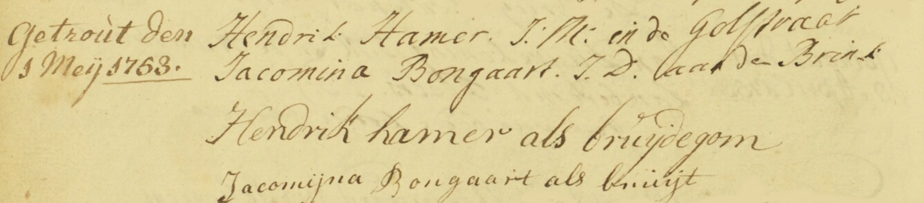 Getroůt den
1 Meij 1753.
Hendrik Hamer. J: M: in de Golstraat
Jacomina Bongaart. J. D. aan den Brink
Hendrik hamer als bruijdegom
Jacomijna Bongaart als bruijt